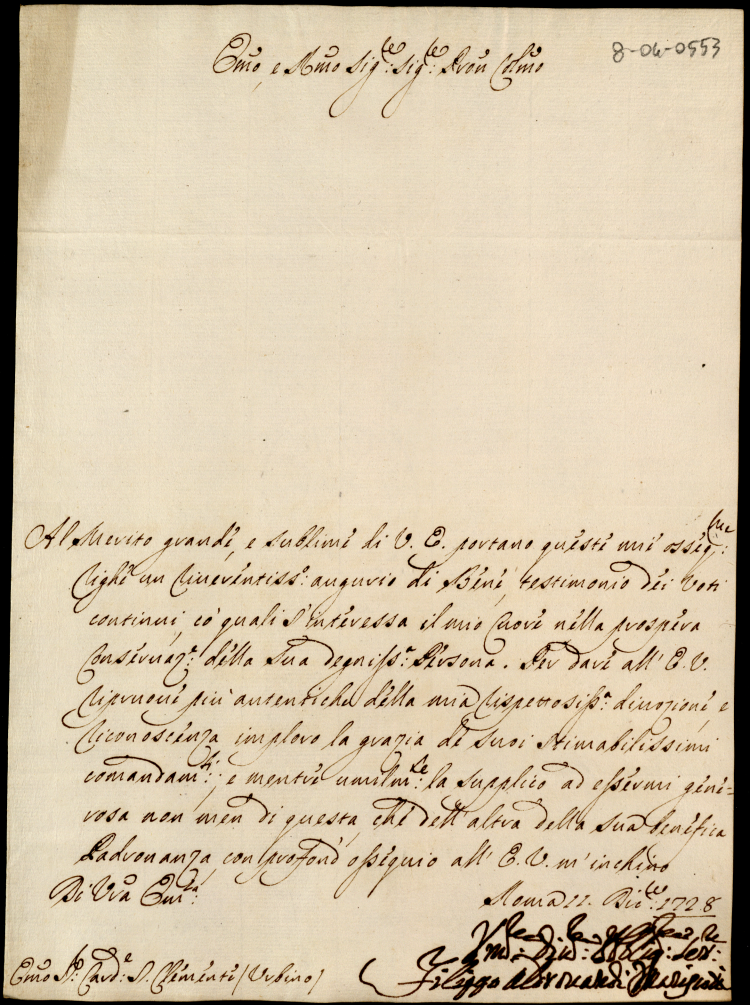 8-06-0553
Emo, e Rmo Sig:re Sig:re Pron Colmo
Al Merito grande, e sublime di V. E. portano queste mie osseq:me
righe un riverentiss:o augurio di Bene, testimonio dei voti
continui, co' quali s'interessa il mio cuore nella prospera
conservaz:e della sua degniss:a Persona. Per dare all' E. V.
riprove più autentiche della mia rispettosiss:a divozione, e
riconoscenza imploro la grazia de suoi stimabilissimi
comandam:ti; e mentre umilm:te la supplico ad essermi gene=
rosa non men di questa, che dell' altra della sua benefica
Padronanza, con profond' ossequio all' E. V. m'inchino
Di Vra Em:za Roma 22. Dic:re 1728
Um:o Obblig: Ser:
Emo S:r Card:e S. Clemente (Urbino) Filippo